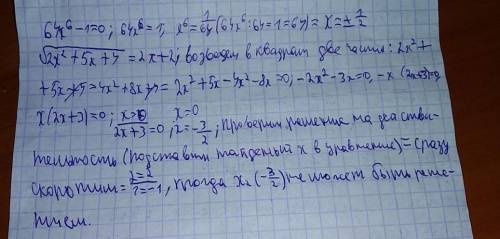 64x⁶-1=0; 64x⁶=1, x⁶=1/64 (64x⁶:64=1:64)=x=±1/2
√2x²+5x+4=2x+2; возведем в квадрат две части: 2x²+
+5x+4=4x²+8x+4=2x²+5x-4x²-8x=0, -2x²-3x=0, -x(2x+3)=0
x(2x+3)=0; x=0 x=0
2x+3=0, x=-3/2; Проверим решение на действи-
тельность (подставим найденный x в уравнение)=сразу
скоротим= 2=2 1=-1, тогда x₂(-3/2) не может быть реше-
нием.